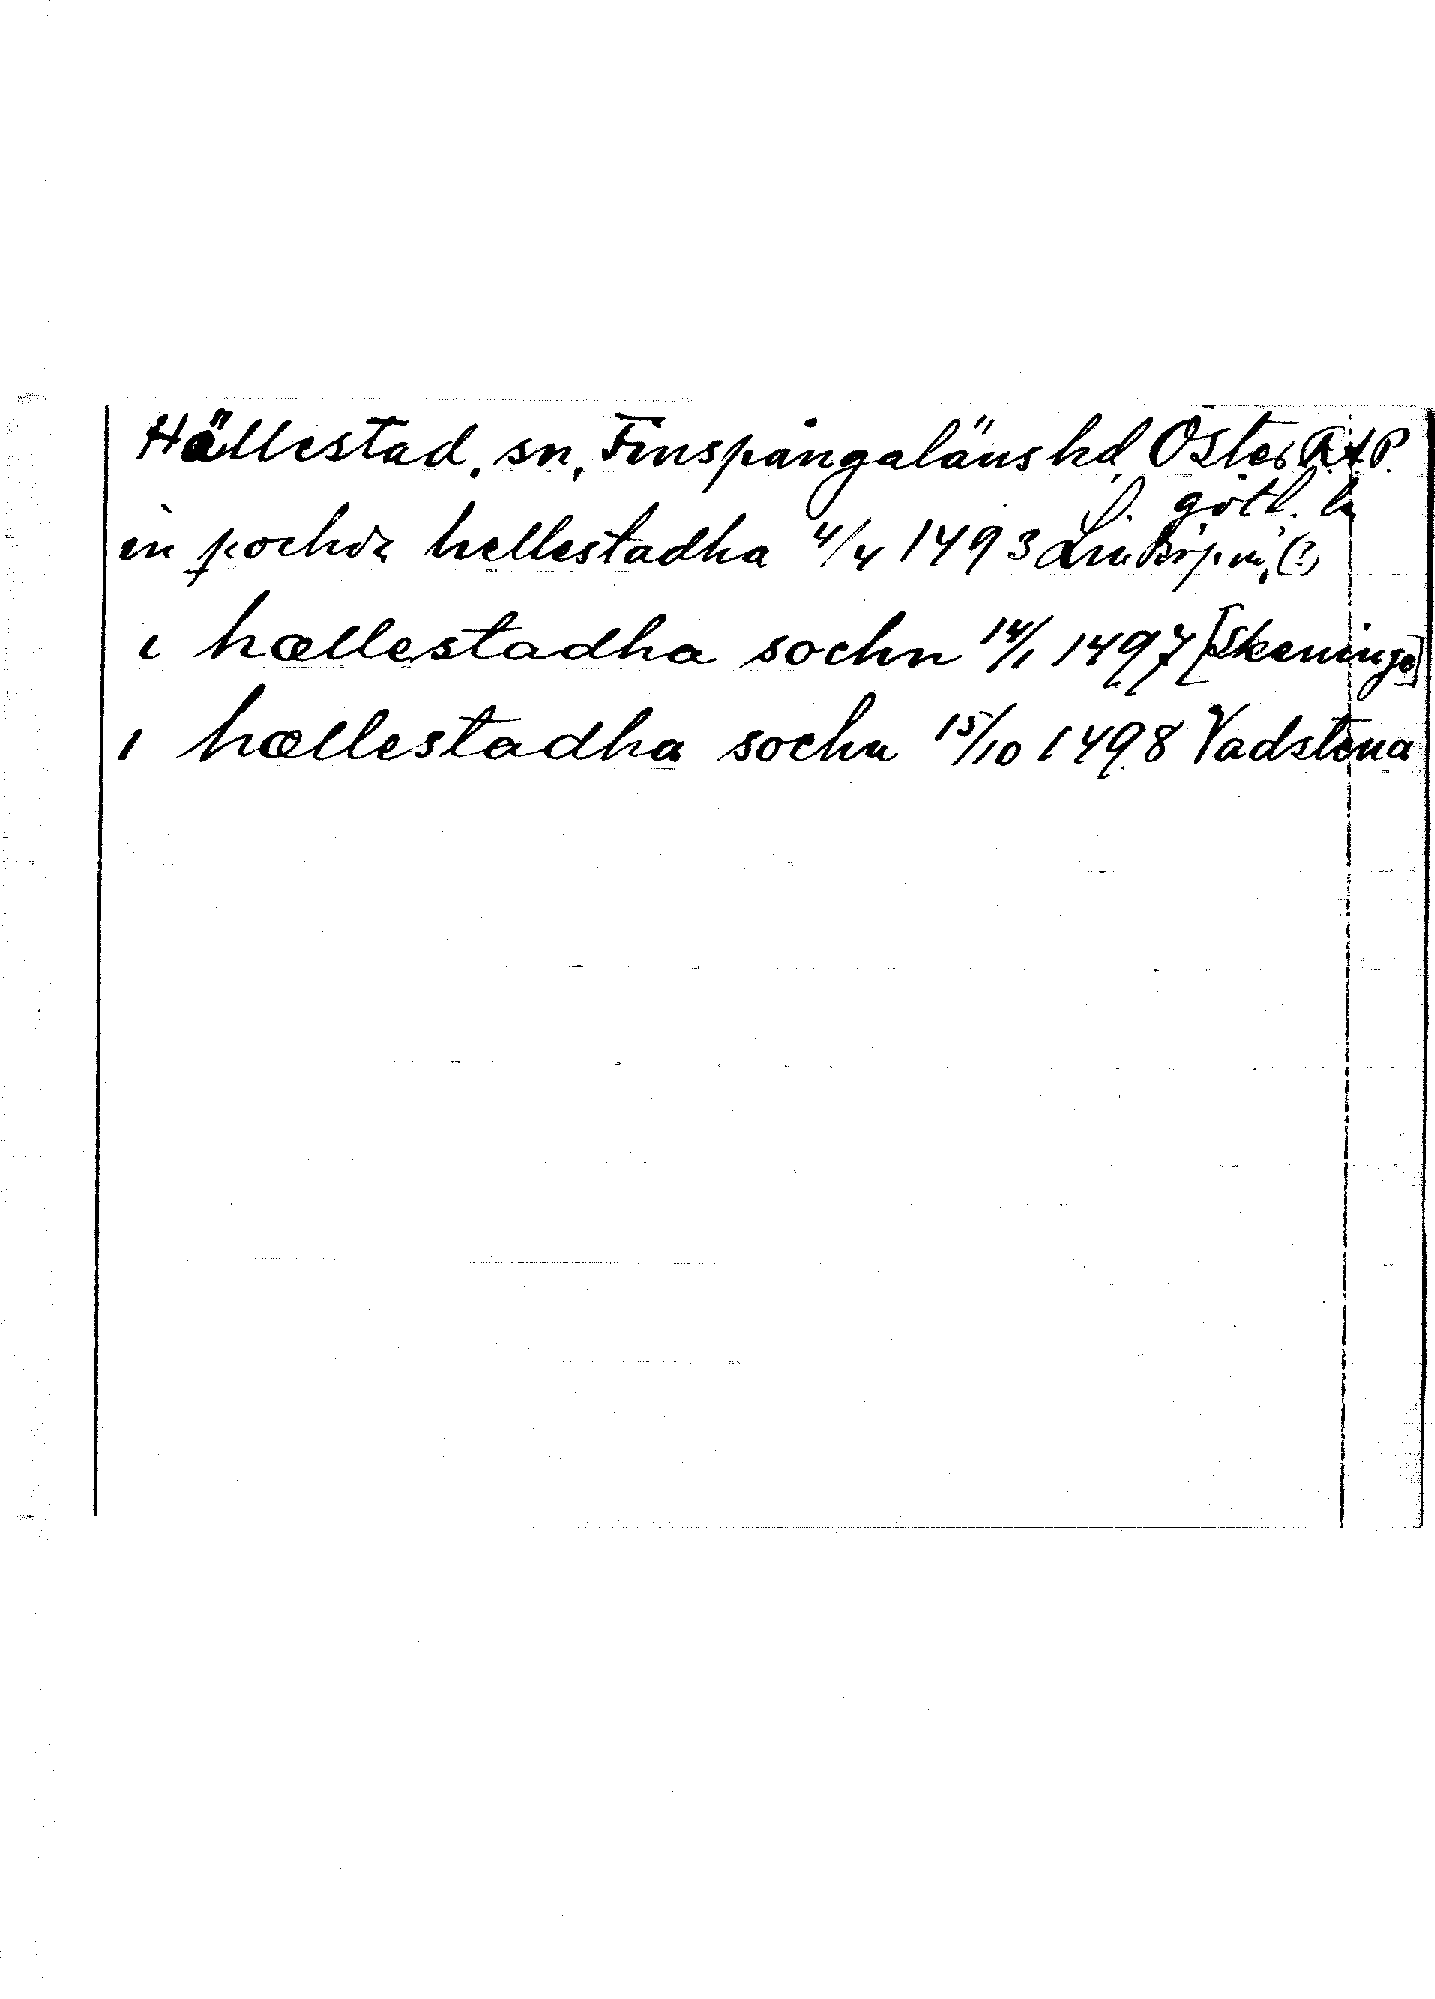 Hällestad, sn, Finspångaläns hd, Öster RAP.
götl. l.
in sochn hellestadha 4/4 1493 Linköping (?)
i hællestadha sochn 14/1 1497 [Skeninge]
i hællestadha sochn 15/10 1498 Vadstena